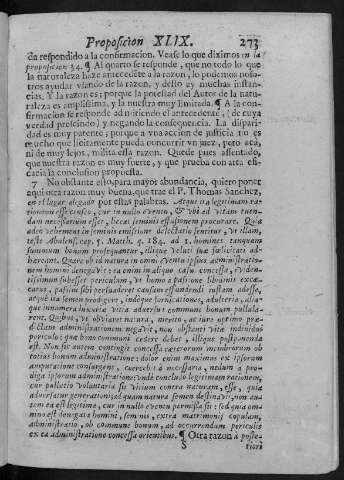 Proposicion XLIX. 273
da respondido a la confirmacion. Vease lo que diximos en la
proposicion 34. ¶ Al quarto se responde, que no todo lo que
la naturaleza haze antecedẽte a la razon, lo podemos noso-
tros ayudar viando de la razon, y desto ay muchas instan-
cias. Y la razon es; porque la potestad del Autor de la natu-
raleza es amplissima, y la nuestra muy limitada. ¶ A la con-
firmacion se responde admitiendo el antecedente, de cuya
verdad prescindo; y negando la consequencia. La dispari-
dad es muy patente; porque a vna accion de justicia no es
mucho que licitamente pueda concurrir vn juez, pero acà,
ni de muy lejos, milita essa razon. Quede pues assentado,
que nuestra razon es muy fuerte, y que prueba con arta efi-
cacia la conclusion propuesta.
7 No obstante esto, para mayor abundancia, quiero poner
aqui otra razon muy buena, que trae el P. Thomas Sanchez,
en el lugar alegado por estas palabras. Atque ita legitimam ra-
tionem esse censeo, cur in nullo eventu, & ubi ad vitam tuen-
dam necessarium esset, liceat seminis effusionem procurare. Quia
adeò vehemens in seminis emissione delectatio sentitur, ut illam,
teste Abulens. cap. 5. Matth. q. 284. ad 2. homines tanquam
summum bonum prosequantur, illique veluti suæ fœlicitati ad-
hæreant. Quare ob id natura in omni eventu ipsius administratio-
nem homini denegavit: ea enim in aliquo casu concessa, eviden-
tissimum subesset periculum, ut homo à passione libidinis excæ-
catus, passim sibi persuaderet causam effundendi iustam adesse,
atque ita semen prodigere, indeque fornicationes, adulteria, alia-
que innumera humanæ vitæ adversa communi bonum pullula-
rent. Quibus, ut obviaret natura, merito, ac iure optimo præ-
dictam administrationem negavit, non obstanti vitæ individui
periculo: quæ bono communi cedere debet, illique postponenda
est. Non sic autem contingit concessa cæterorum membrorum ob
totius bonum administratione: dolor enim maximus ex ipsorum
amputatione consurgens, coercebit à necessaria, nedum a pro-
diga ipsorum administratione: unde conclude legitimam rationem,
cur pollutio voluntaria sit vitium contra naturam, esse, quia
adversatur generationi; ad quam natura semen destinavit; non au-
tem ea est legitime, cur in nullo eventu permissa sit: sed quia om-
nino est denegata homini, seminis, extra matrimonij copulam,
administratio ob commune bonum, ad occurrendum periculis
ex ea administratione concessa orientibus. ¶ Otra razon a poste-
S riori